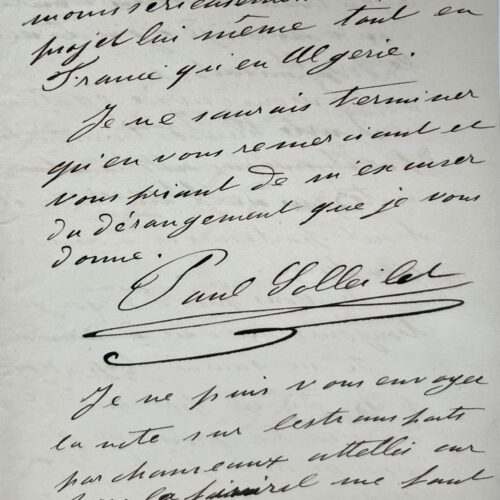 moins sérieusement
projet lui même tant en
France qu'en Algérie.
Je ne saurais terminer
qu'en vous remerciant et
vous priant de m'excuser
du dérangement que je vous
donne.
Paul Soleillet
Je ne puis vous envoyer
la note sur les transports
par chameaux attelés car
me faut